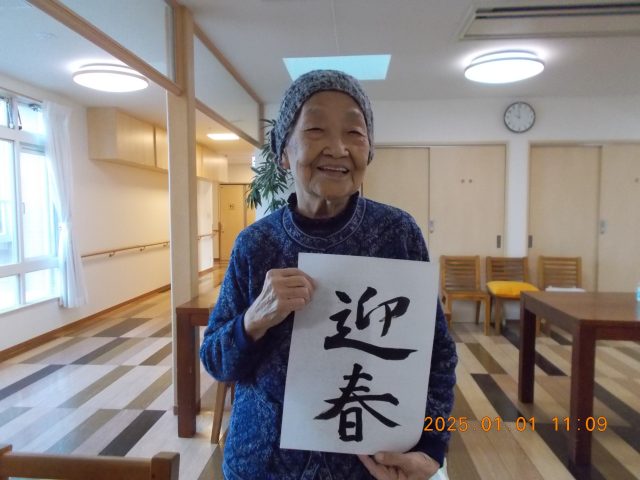 迎
春
2025.01.01 11:09